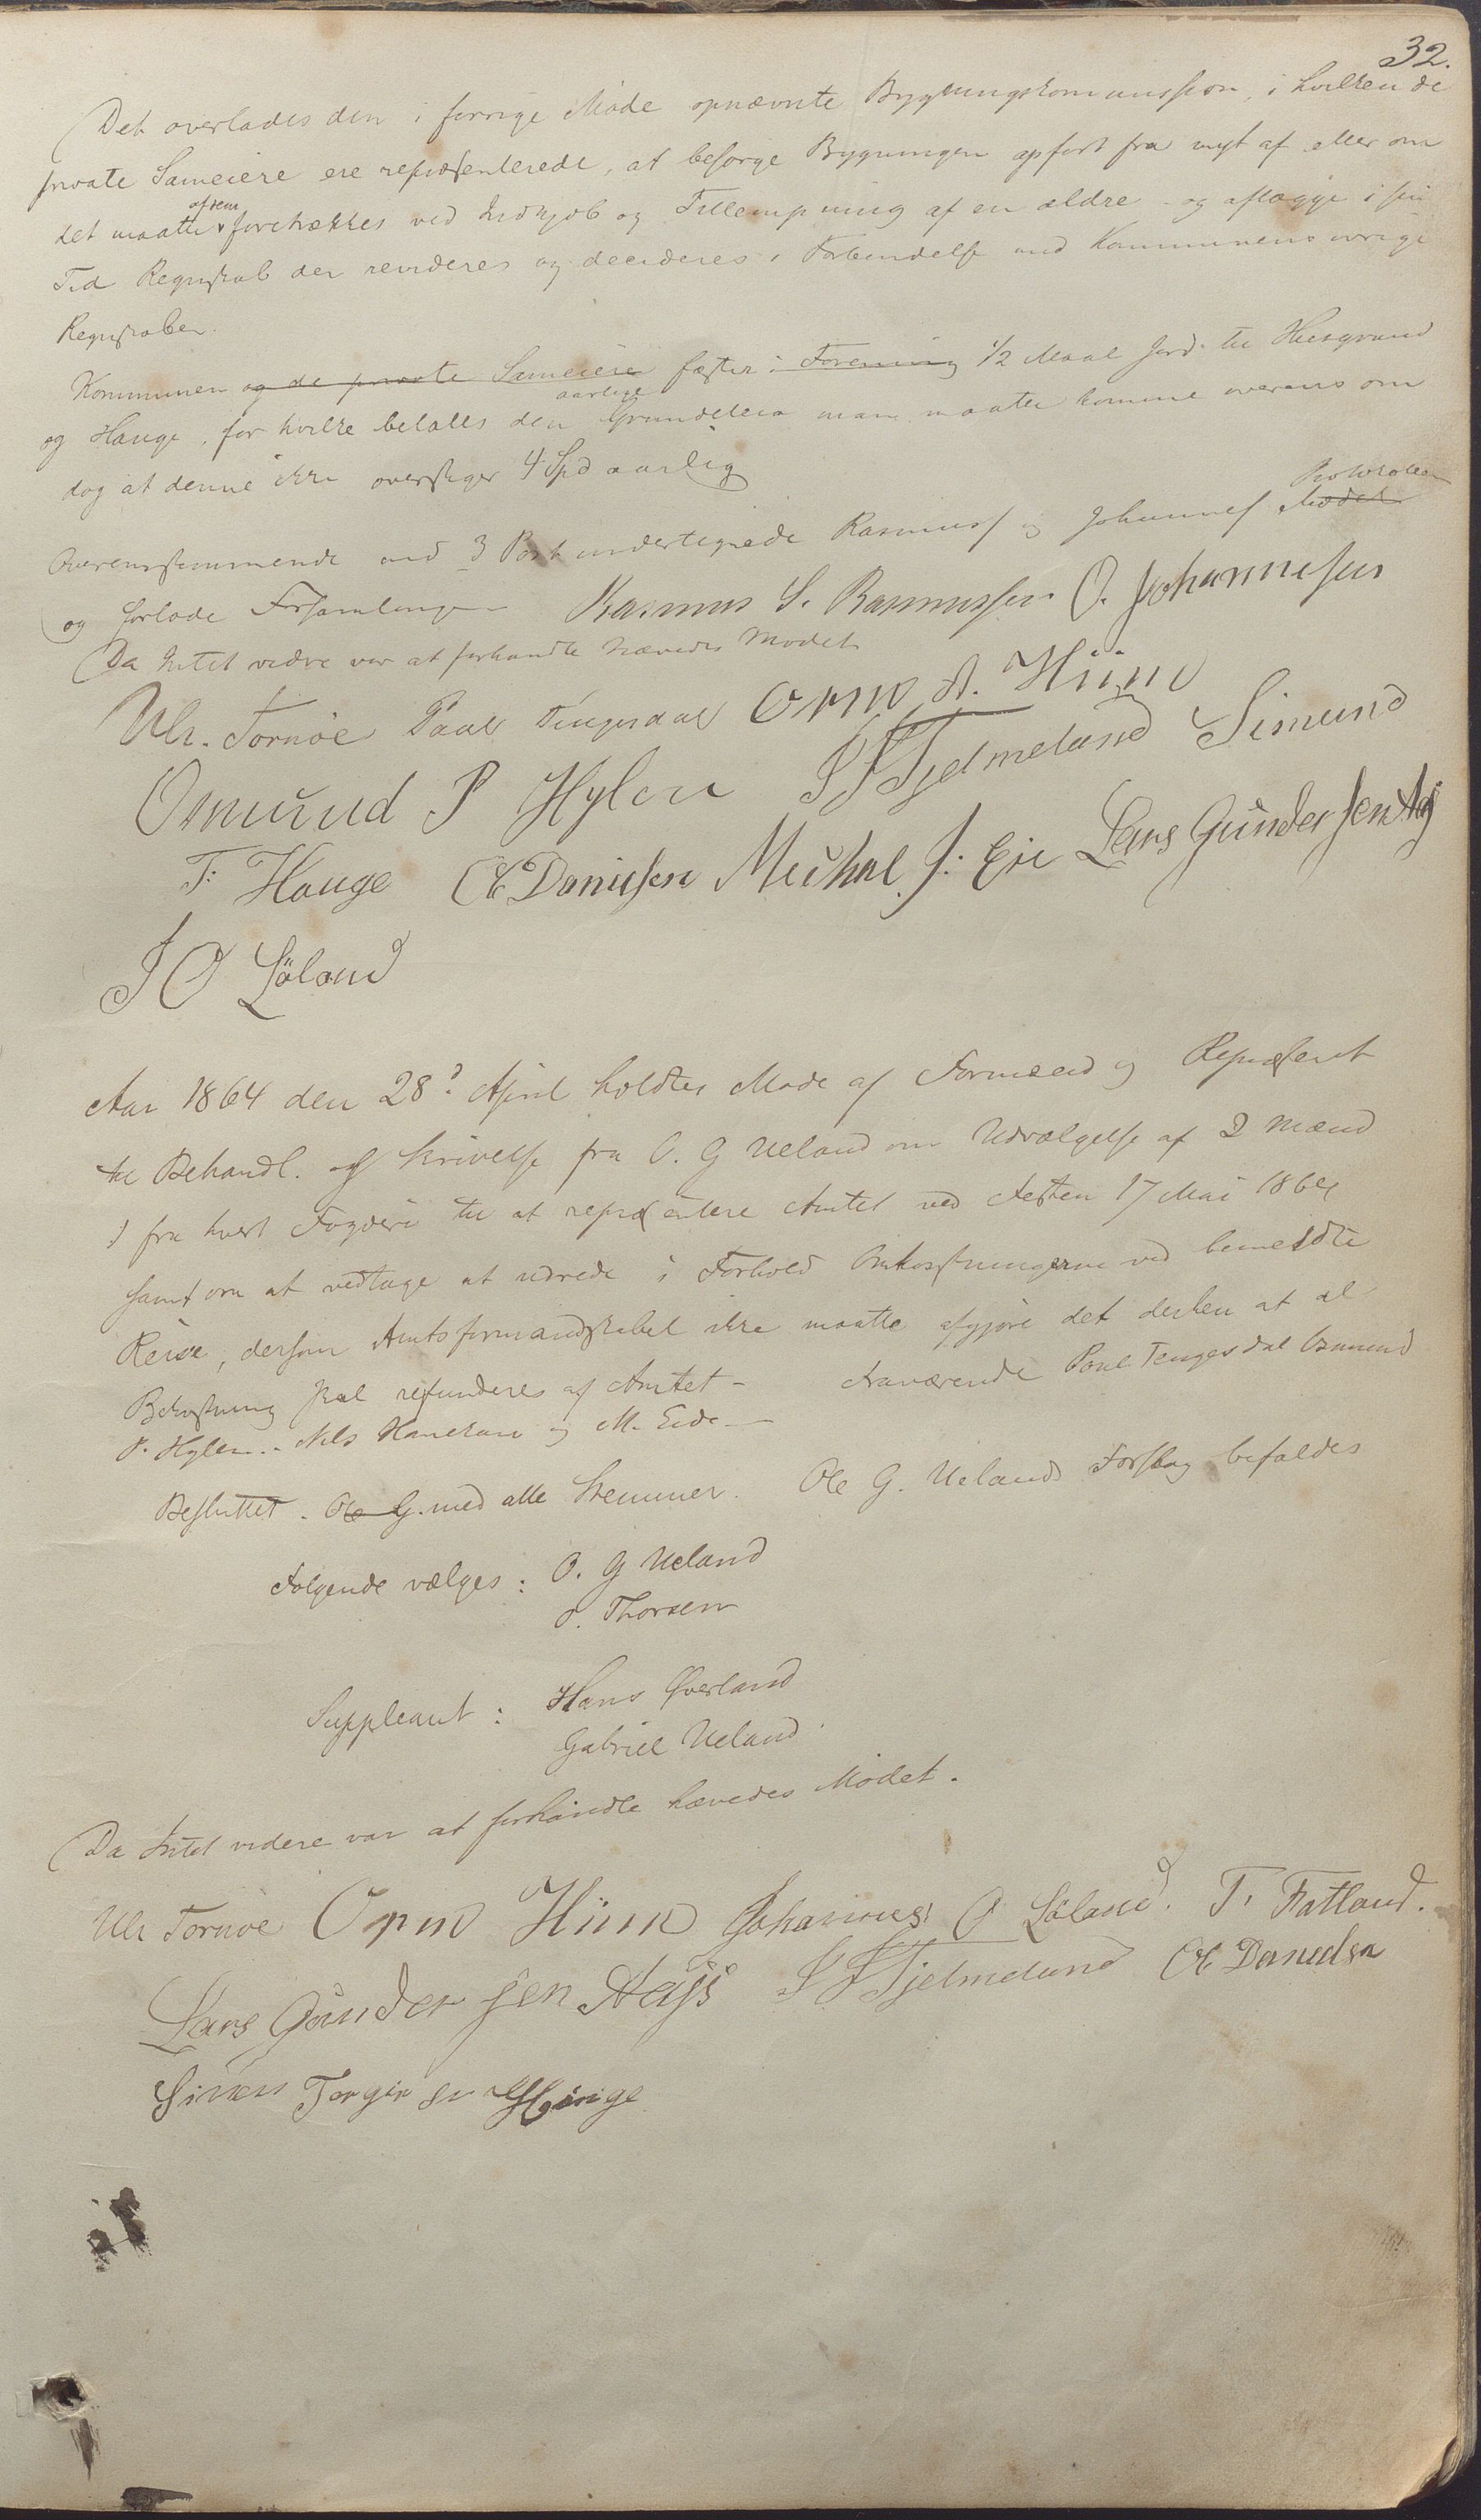 32.
Det overlades den i forrige Møde opnævnte Bygningskommission, i hvilken de
private Sameiere ere repræsenterede, at besørge Bygningen opført fra nyt af eller om
det maatte afdem foretrækkes ved Indkjøb og Tillempning af en ældre - og aflægge i sin
Tid Regnskab der revideres og decideres i Forbindelse med Kommunens øvrige
Regnskaber.
Kommunen og de private Sameiere fæster i Forening 1/2 Maal Jord til Huusgrund
og Hauge, for hvilke betales den aarlige Grundleie man maatte komme overens om
dog at denne ikke overstiger 4 Spd aarlig
Overensstemmende med 3 Post undertegnede Rasmuss og Johannes Mødet Protokollen
og forlode Forsamlingen Rasmus S. Rasmussen O. Johannesen
Da Intet videre var at forhandle hævedes Mødet
Ulr. Tornøe Paal Tengesdal Orm A. Hiim
Omund P Hylen S S Tjelmeland Simund
T: Hauge Ol Danielsen Michal J: Eie Lars Gundersen
J O Løland
Aar 1864 den 28de April holdtes Møde af Formænd og Repræsent
til Behandl. af Skrivelse fra O. G Ueland om Udvælgelse af 2 Mænd
1 fra hvert Fogderi til at repræsentere Amtet ved Festen 17 Mai 1864
samt om at vedtage at udrede i Forhold Omkostningerne ved bemeldte
Reise, dersom Amtsformandskabet ikke maatte afgjøre det derhen at al
Bekostning skal refunderes af Amtet - Fraværende Poul Tengesdal Osmund
P. Hylen - Nils Hanekam og M. Eide -
Besluttet. Ole G. med alle Stemmer. Ole G. Uelands Forslag bifaldes
Følgende vælges: O. G Ueland
O. Thorsen
Suppleant: Hans Øverland
Gabriel Ueland.
Da Intet videre var at forhandle hævedes Mødet.
Ulr Tornøe Orm Hiim Johannes O Løland. T. Fatland.
Lars Gundersen S S Tjelmeland Ol Danielsn
Simen Torgir sn Hauge